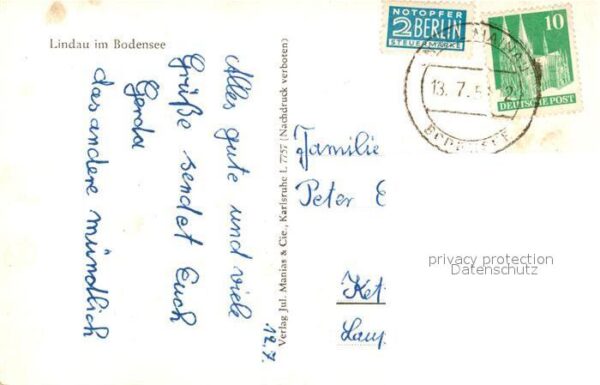 Lindau im Bodensee
Alles gute und viele
Grüße sendet Euch
Gerda
das andere mündlich
12.7.
Verlag Jul. Manias & Cie., Karlsruhe L 7757 (Nachdruck verboten)
NOTOPFER
2 BERLIN
STEUERMARKE
10
DEUTSCHE POST
MAINAU
13.7.5
BODENSEE
Familie
Peter E
Ket
Lau
privacy protection
Datenschutz